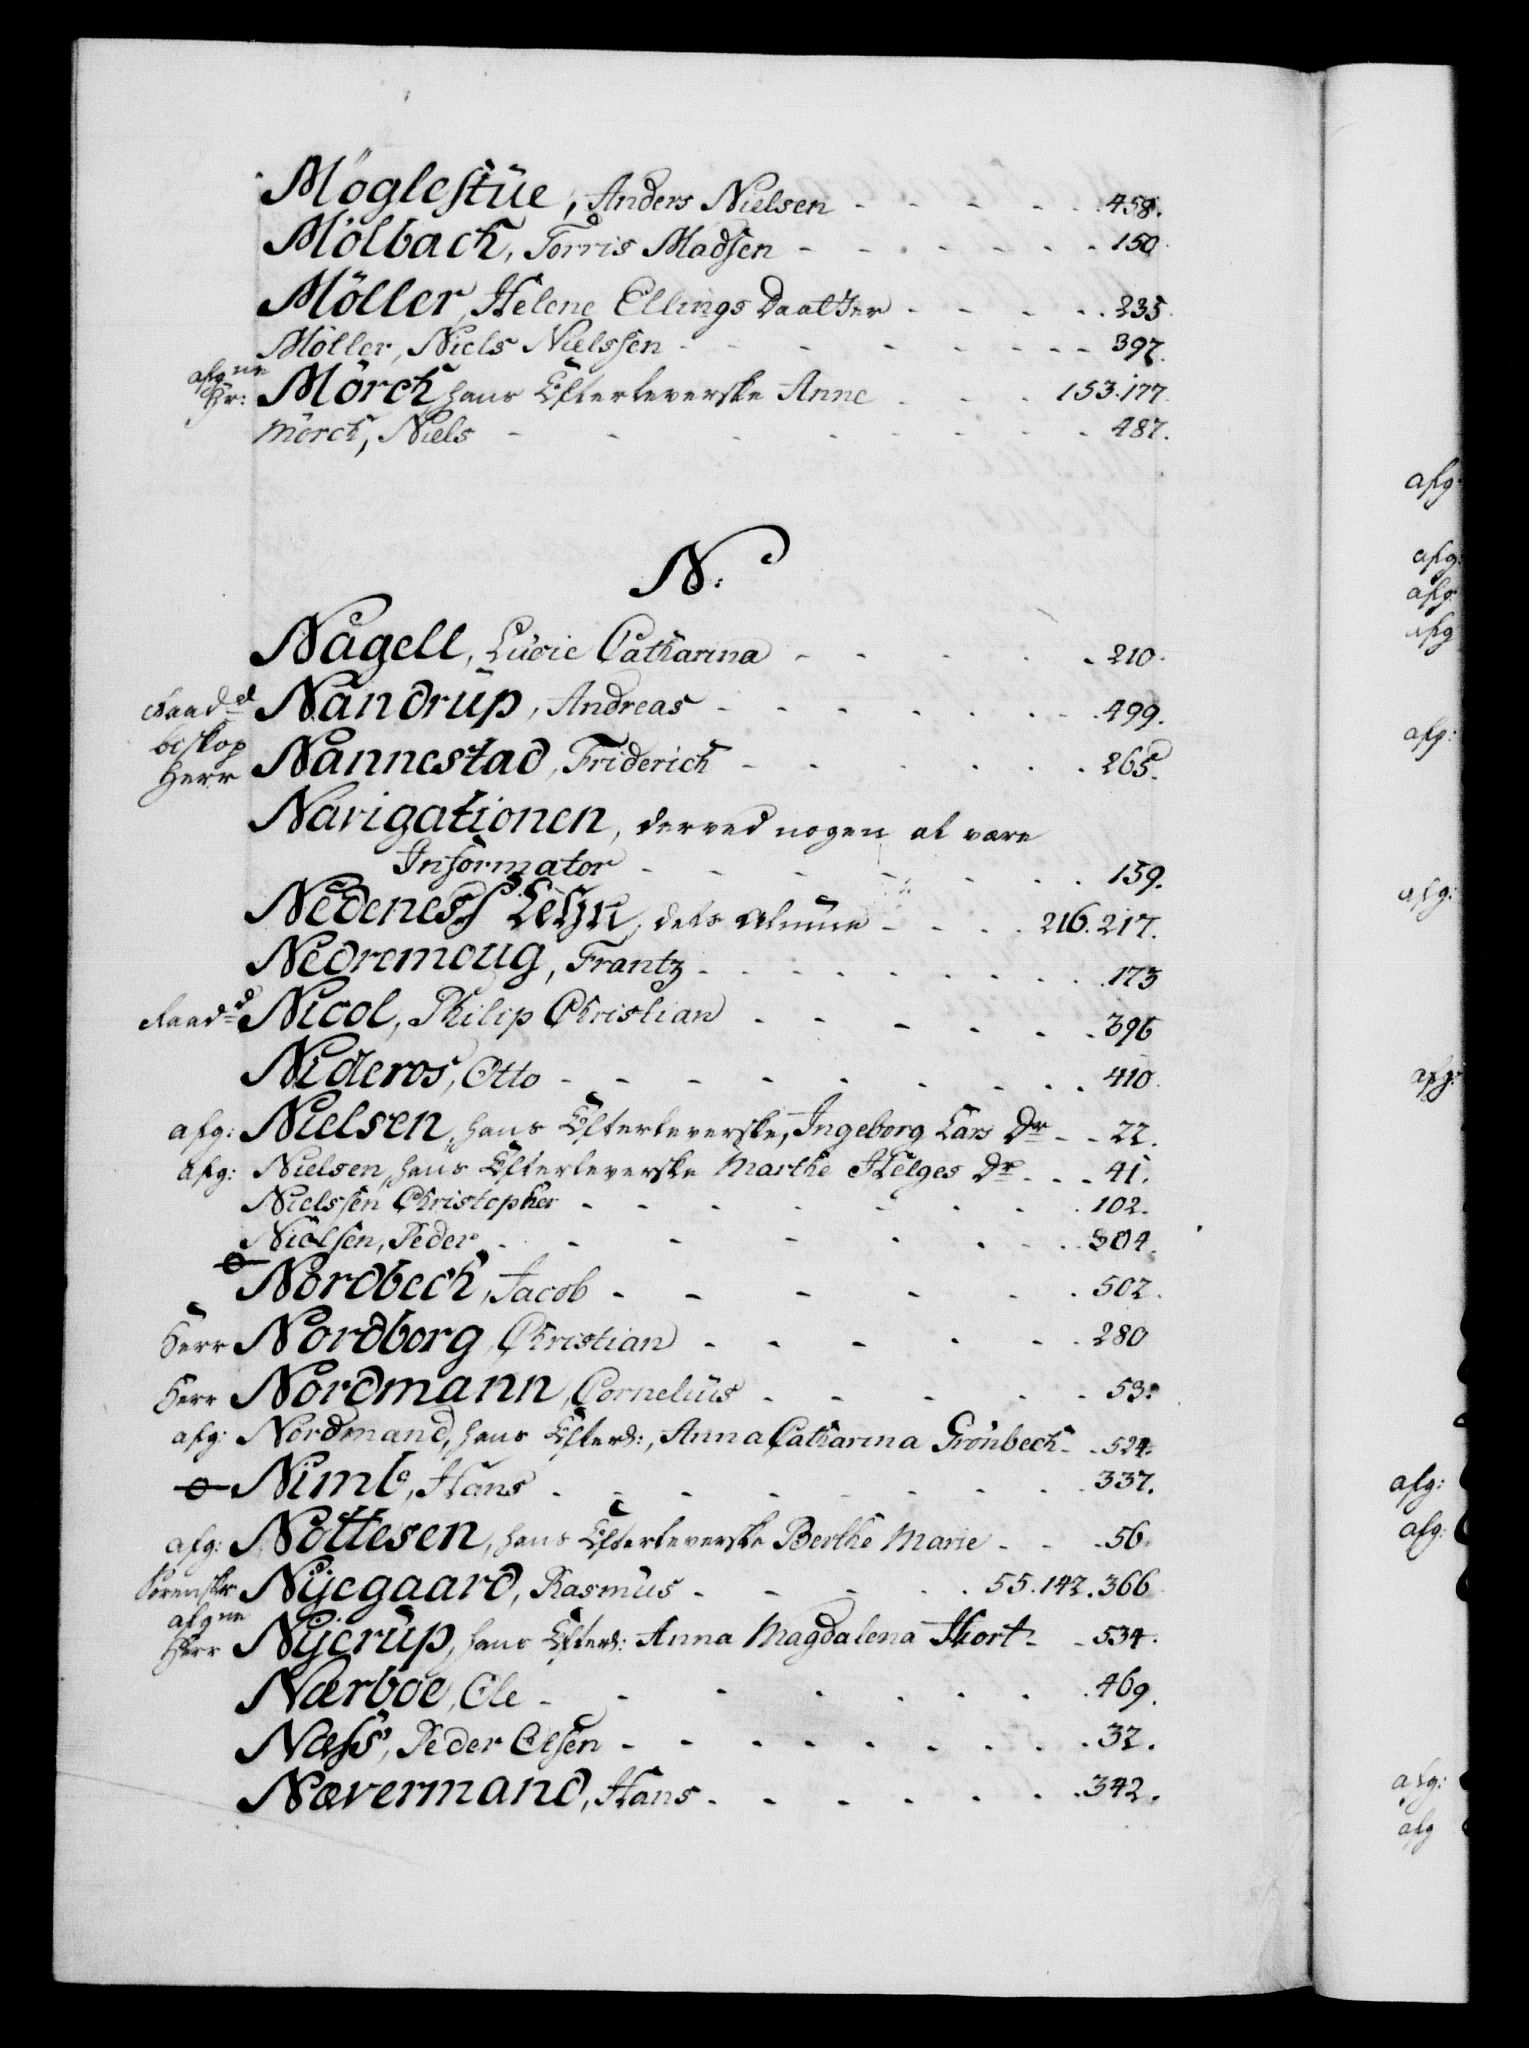 Möglestüe, Anders Nielsen - - - - - . 458.
Mölbach, Torris Madsen - - - - - - - 150.
Möller, Helene Ellings Daatter - - - - . 235.
Möller, Niels Nielssen - - - - - - - - - 397.
afgne Hr: Mörch hans Efterleverske Anne - - . 153.177.
Mörch, Niels - - - - - - - - 487.
N:
Nagell, Lucie Catharina - - - - - . 210.
Raadd Nandrup, Andreas - - - - - - - . 499.
biskop
Herr Nannestad, Friderich - - - - - - . 265.
Navigationen, derved nogen at være
Informator - - - - - - - . 159.
Nedeness Lehn, dets Almue - - - . 216.217.
Nedremoug, Frantz - - - - - - - - . 173
Raadd Nicol, Philip Christian - - - - - . 396
Nideros, Otto - - - - - - - - . 410.
afg: Nielsen, hans Efterleverske, Ingeborg Lars Dr - - 22.
afg: Nielsen, hans Efterleverske Marthe Helges Dr - - - 41.
Nielssen Christopher - - - - - - - . 102.
Nielsen, Peder - - - - - - - . 304.
Nordbech, Jacob - - - - - . 502.
Herr Nordborg, Christian - - - - - . 280
Herr Nordmann, Cornelius - - - - - 53.
afg: Nordmand, hans Efterl:, Anna Catharina Grönbech - . 524.
Nimb, Hans - - - - - - - . 337.
afg: Nottesen, hans Efterleverske Berthe Marie - - . 56.
Sorenskr Nyegaard, Rasmus - - - - . 55.142.366
afgne
Herr Nyerup, hans Efterl: Anna Magdalena Hort - - 534.
Nærboe, Ole - - - - - - - . 469.
Næss, Peder Olsen - - - - - - - . 32.
Nævermand, Hans - - - - - - . 342.
afg:
afg:
afg
afg
afg:
afg:
afg:
afg:
afg:
afg:
afg